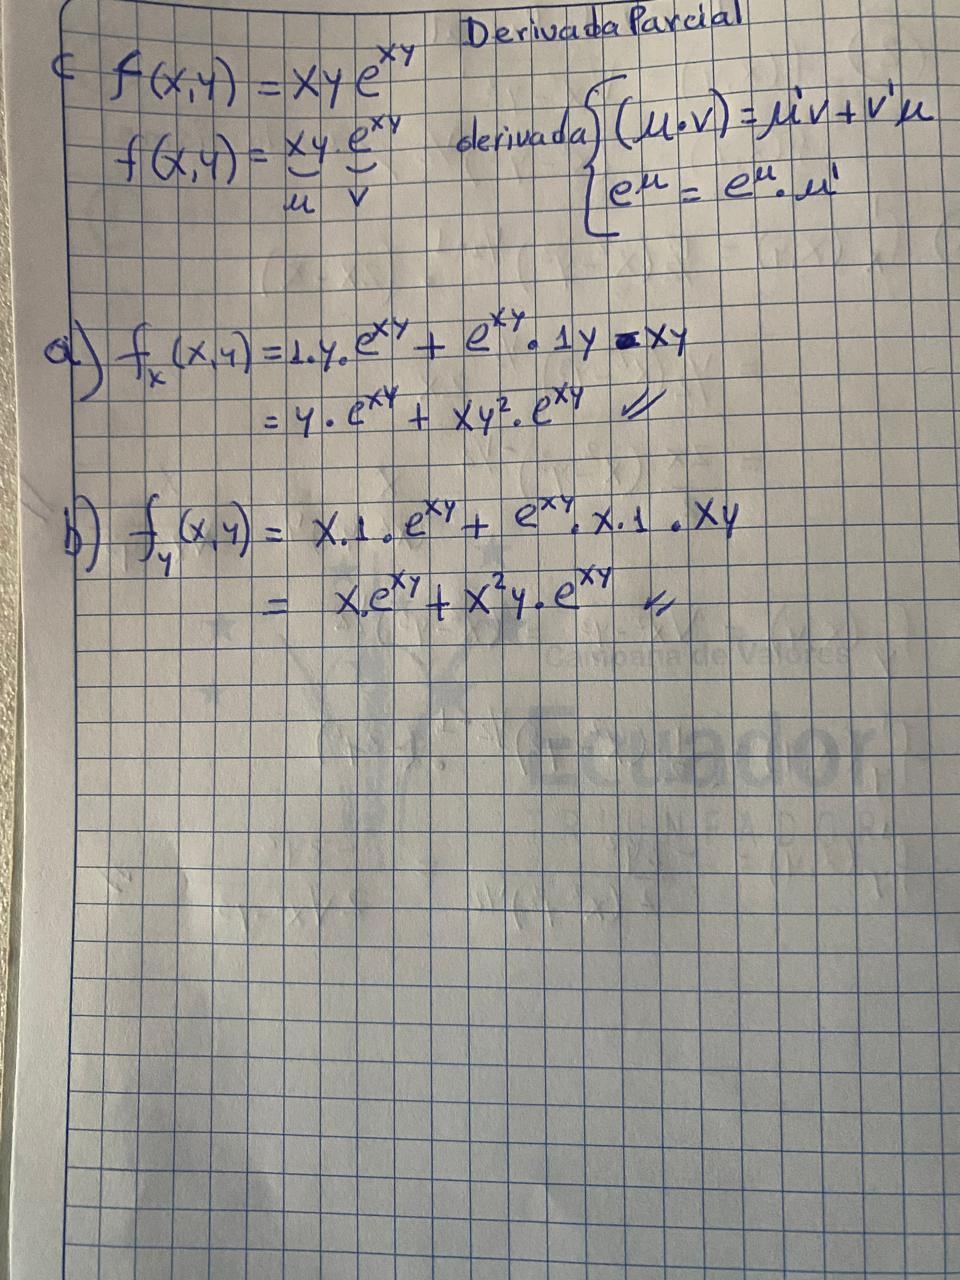 Derivada Parcial
f(x,y) = xy e^xy
f(x,y) = xy · e^xy derivada (μ·v) = μ'v + v'μ
μ v e^μ = e^μ · μ'
a) fx (x,y) = 1·y·e^xy + e^xy · 1y · xy
= y · e^xy + xy² · e^xy //
b) fy (x,y) = x·1·e^xy + e^xy · x·1 · xy
= x·e^xy + x²y · e^xy //
Campaña de Valores
Ecuador
TRIUNFADOR